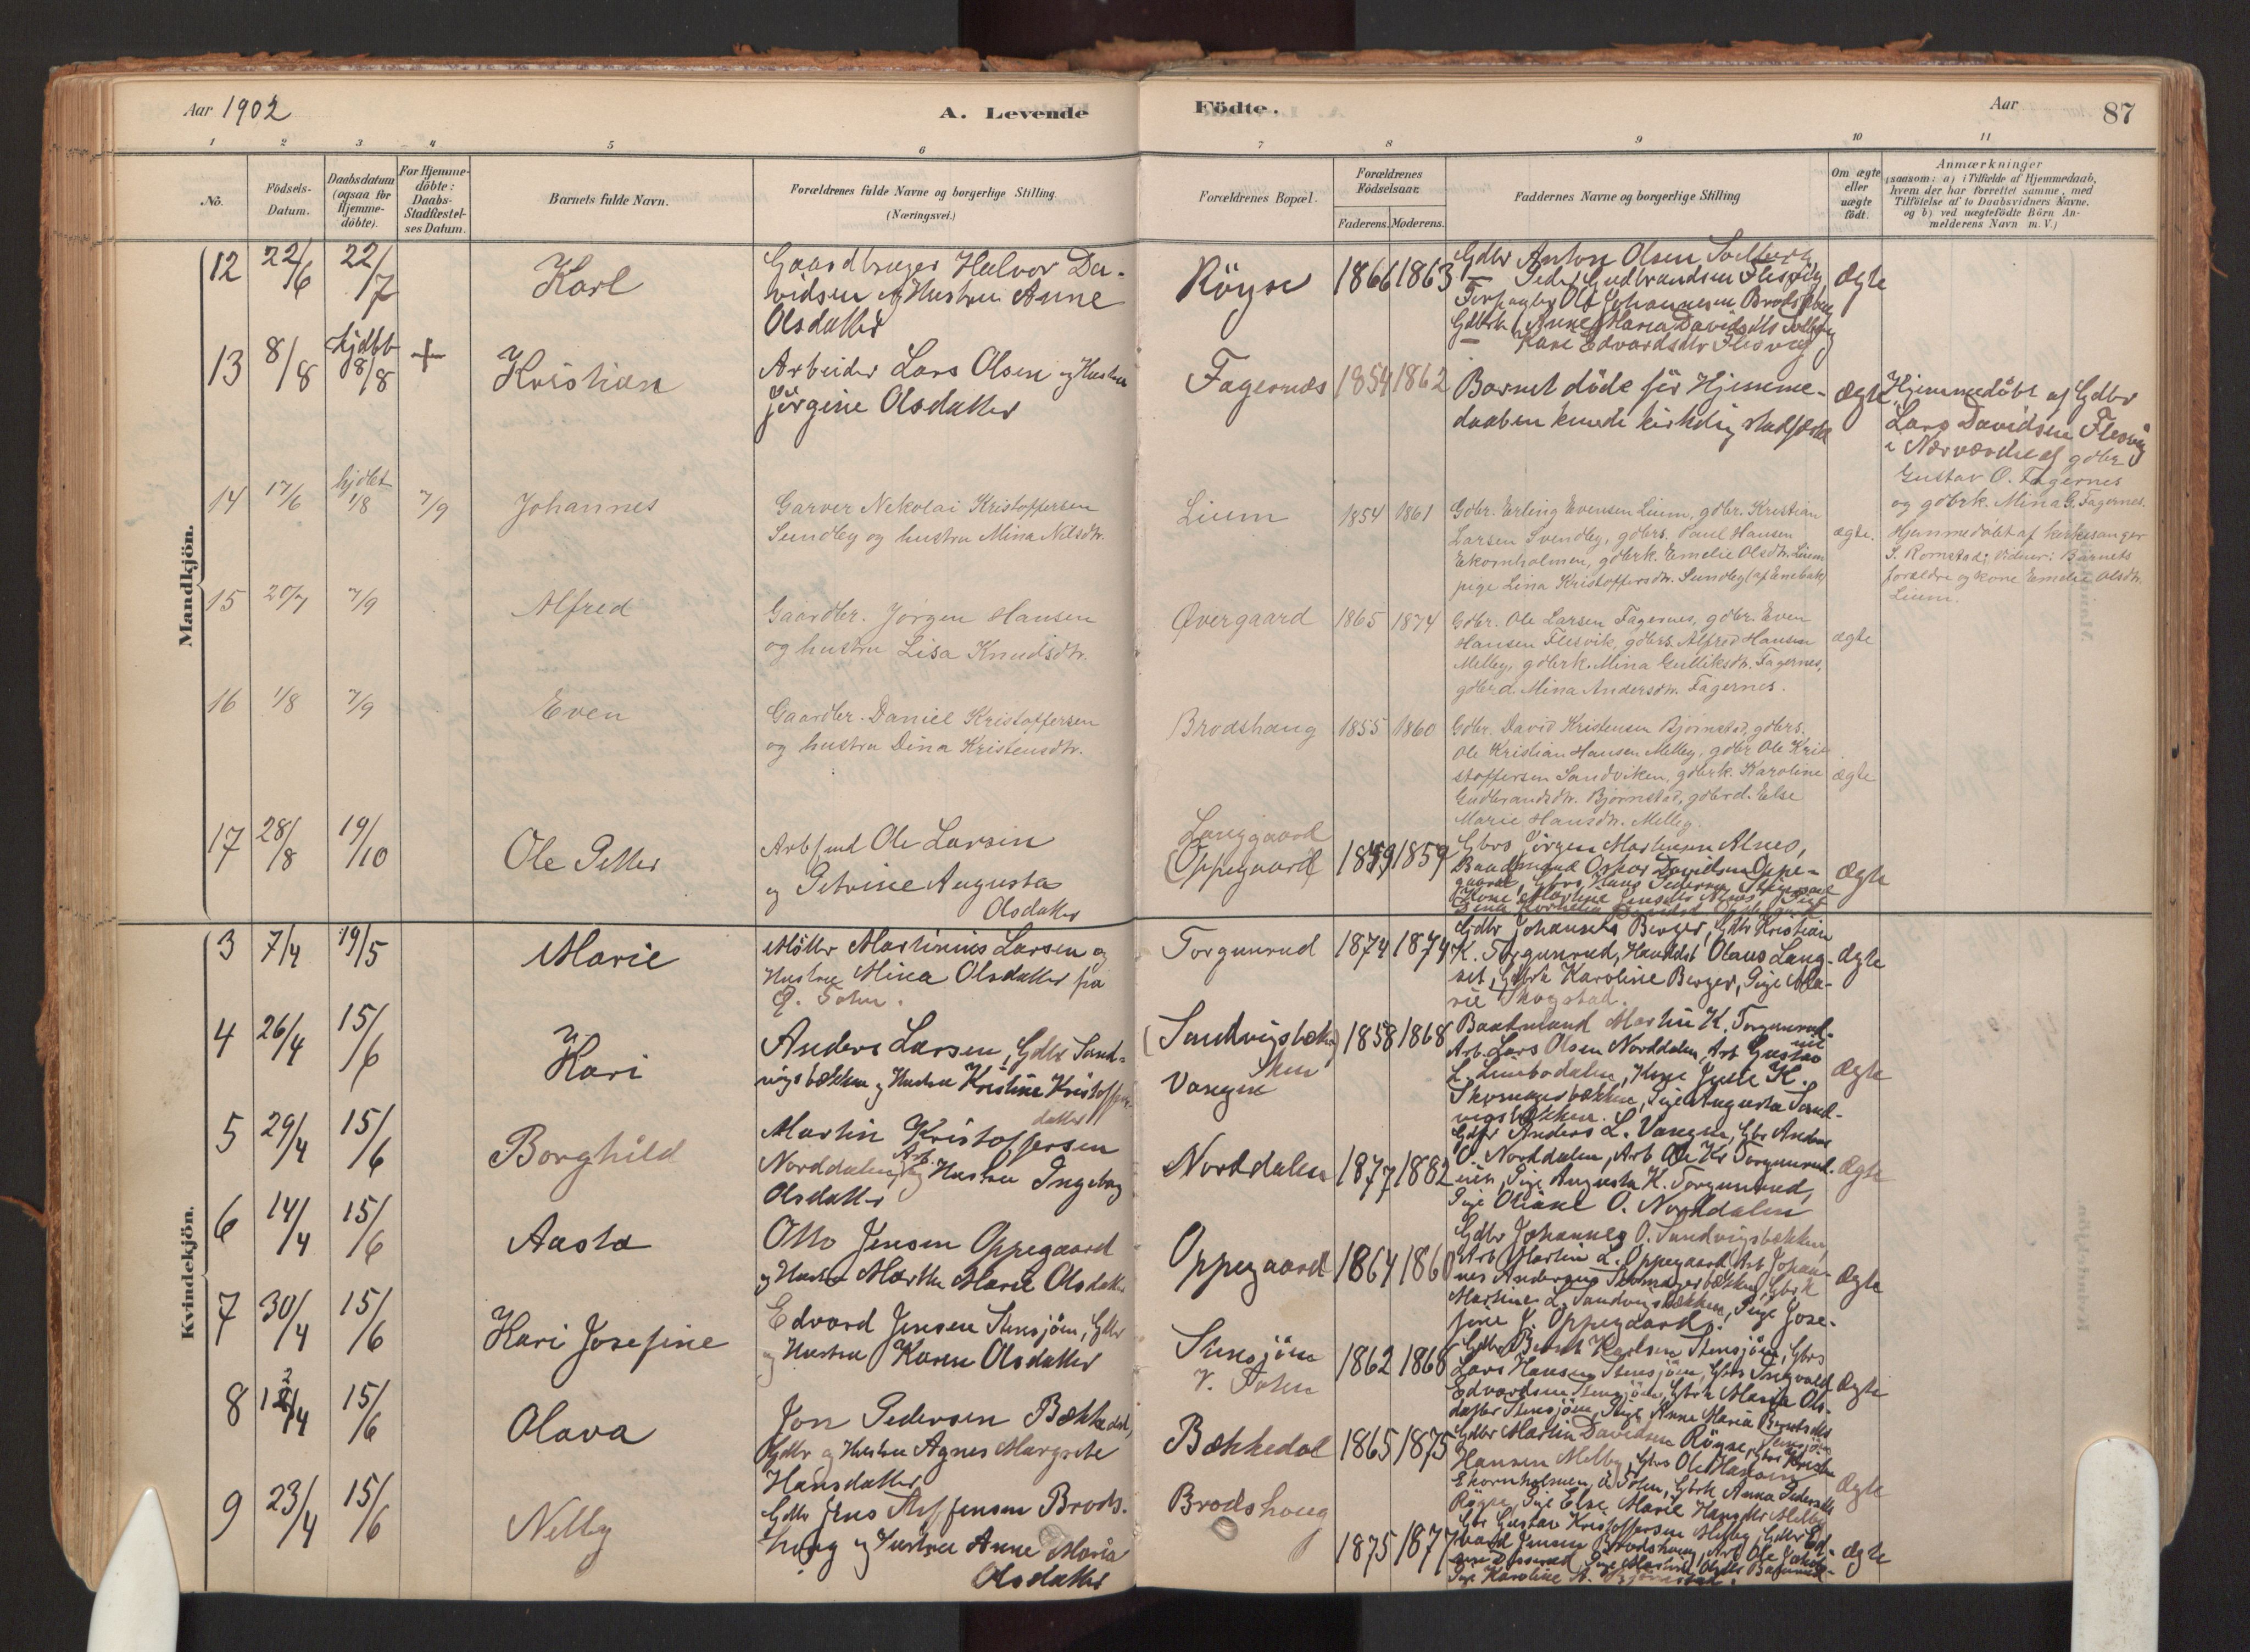 Aar 1902
A. Levende
Födte.
Aar
87
1 2 3 4 5 6 7 8 9 10 11
No.
Födsels-
Datum.
Daabsdatum
(ogsaa for
Hjemme-
döbte).
For Hjemme-
döbte:
Daabs-
Stadfæstel-
ses Datum.
Barnets fulde Navn.
Forældrenes fulde Navne og borgerlige Stilling
(Næringsvei.)
Forældrenes Bopæl.
Forældrenes
Födselsaar.
Faderens. Moderens.
Faddernes Navne og borgerlige Stilling
Om ægte
eller
uægte
födt.
Anmærkninger
(saasom: a) i Tilfælde af Hjemmedaab,
hvem der har forrettet samme, med
Tilföielse af to Daabsvidners Navne,
og b) ved uægtefödte Börn An-
melderens Navn m. V.)
Mandkjön.
12 22/6 22/7 Karl
Gaardbruger Halvor Da-
vidsen og Hustru Anne
Olsdatter
Röyse 1866 1863
Gdbr Anton Olsen Solberg
Peder Gudbrandsen Flesvig
Ole Johannesen Brodshaug
Anne Maria Davidsdtr
Kari Edvardsdtr Flesvig
Ægte
13 8/8 hjdbt 8/8 + Kristian
Arbeider Lars Olsen og Hustru
Jörgine Olsdatter
Fagernæs 1854 1862
Barnet döde för Hjemme-
daaben kunde kirkelig stadfæstes
ægte
Hjemmedöbt af Gdbr
Lars Davidsen Flesvig
i Nærværelse af gdbr
Gustav O. Fagernes
og gdbrk. Mina G. Fagernes.
14 17/6 hjdbt 1/8 7/9 Johannes
Garver Nekolai Kristoffersen
Sundby og hustru Mina Nilsdtr.
Lium 1854 1861
Gdbr. Erling Evensen Lium, gdbr. Kristian
Larsen Svendby, gdbrs. Paul Hansen
Ekornholmen, gdbrk. Emelie Olsdtr. Lium
pige Lina Kristoffersdtr. Sundby (af Enebak)
ægte.
Hjemmedöbt af kirkesanger
S. Romstad; Vidner: Barnets
forældre og kone Emelie Olsdtr.
Lium.
15 20/7 7/9 Alfred
Gaardbr. Jörgen Hansen
og hustru Lisa Knudsdtr.
Øvergaard 1865 1874
Gdbr. Ole Larsen Fagernes, gdbr. Even
Hansen Flesvik, gdbrs. Alfred Hansen
Melby, gdbrk. Mina Gulliksdtr. Fagernes,
gdbrd. Mina Andersdtr. Fagernes.
ægte
16 1/8 7/9 Even
Gaardbr. Daniel Kristoffersen
og hustru Dina Kristensdtr.
Brodshaug 1855 1860
Gdbr. David Kristensen Bjørnstad, gdbrs.
Ole Kristian Hansen Melby, gdbr Ole Kri-
stoffersen Sandviken, gdbrk. Karoline
Gudbrandsdtr. Bjørnstad, gdbrd. Else
Marie Hansdtr. Melby.
ægte
17 28/8 19/10 Ole Petter
Arbsmd Ole Larsen
og Petrine Augusta
Olsdatter
Langgaard
(Oppegaard) 1859 1859
Gbrs Jörgen Martinsen Alnes,
Baadsmand Oskar Davidsen Oppe-
gaard, Gbrs Hans Pedersen
Ægte
Kvindekjön.
3 7/4 19/5 Marie
Möller Martinius Larsen og
Hustru Mina Olsdatter fra
Torgunrud 1874 1874
Gdbr Johannes Berger, Gdbr Kristian
K. Torgunrud, Olaus Lang-
set, Gbrk Karoline Berger, Pige Ma-
rie Skogstad.
Ægte
4 26/4 15/6 Kari
Anders Larsen, Gdbr Sand-
vigsbækken og Hustru Kristine Kristoffers-
datter
(Sandvigsbækken)
Vangen 1858 1868
Baadsmand Martin K. Torgunrud-
Arb. Lars Olsen Norddalen, Arb Gustav
L. Limbodalen, Kone Julie K.
Skomagerbækken, Pige Augusta Sand-
vigsbækken.
Ægte
5 29/4 15/6 Borghild
Martin Kristoffersen
Norddalen, Arb. og Hustru Ingeborg
Olsdatter
Norddalen 1877 1882
Gdbr Anders L. Vangen, Gbr Anders
O. Norddalen, Arb Ole Kr Torgunrud-
Pige Augusta K. Torgunrud,
Pige Oliane O. Norddalen
Ægte
6 14/4 15/6 Aasta
Otto Jensen Oppegaard
og Hustru Marthe Marie Olsdatter
Oppegaard 1864 1860
Gdbr Johannes O. Sandvigsbækken,
Arb Martin L. Oppegaard, Arb Johan-
nes Andersen Skomagerbækken, Gbrk
Martine L. Sandvigsbækken, Pige Jose-
fine J. Oppegaard.
Ægte
7 30/4 15/6 Kari Josefine
Edvard Jensen Stensjöen, Gdbr
og Hustru Karen Olsdatter
Stensjöen 1862 1868
Gdbr Bernt Karlsen Stensjöen, Gbrs
Lars Hansen Stensjöen, Gbrs Ingvald
Edvardsen Stensjöen, Gbrk Maria Ols-
datter Stensjöen, Pige Anne Maria Berntsdtr
Stensjöen
Ægte
8 12/4 15/6 Olava
Jon Pedersen Bækkedal,
Gdbr og Hustru Agnes Margrete
Hansdatter
Bækkedal 1865 1875
Gdbr Martin Davidsen Röyse, Gbrs
Hansen Melby, Gbrs Ole Hansen
Ekornholmen, Gbrk Anna Pedersdtr
Röyse, Pige Else Marie Hansdtr Melby
Ægte
9 23/4 15/6 Nelly
Gdbr Jens Steffensen Brods-
haug og Hustru Anne Maria
Olsdatter
Brodshoug
1875 1877
Gbr Gustav Kristoffersen Melby, Gdbr Ed-
vard Jensen Brodshoug, Arb Ole
Pige Karoline
Ægte